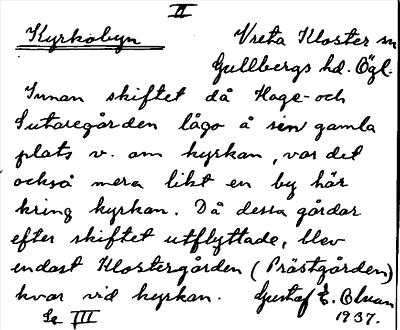 II
Kyrkobyn Vreta Kloster sn
Gullbergs hd. Ögl.
Innan skiftet då Hage- och
Sutaregården lågo å sin gamla
plats v. om kyrkan, var det
också mera likt en by här
kring kyrkan. Då dessa gårdar
efter skiftet utflyttade, blev
endast Klostergården (Prästgården)
kvar vid kyrkan. Gustaf E. Olman
Se III 1937.